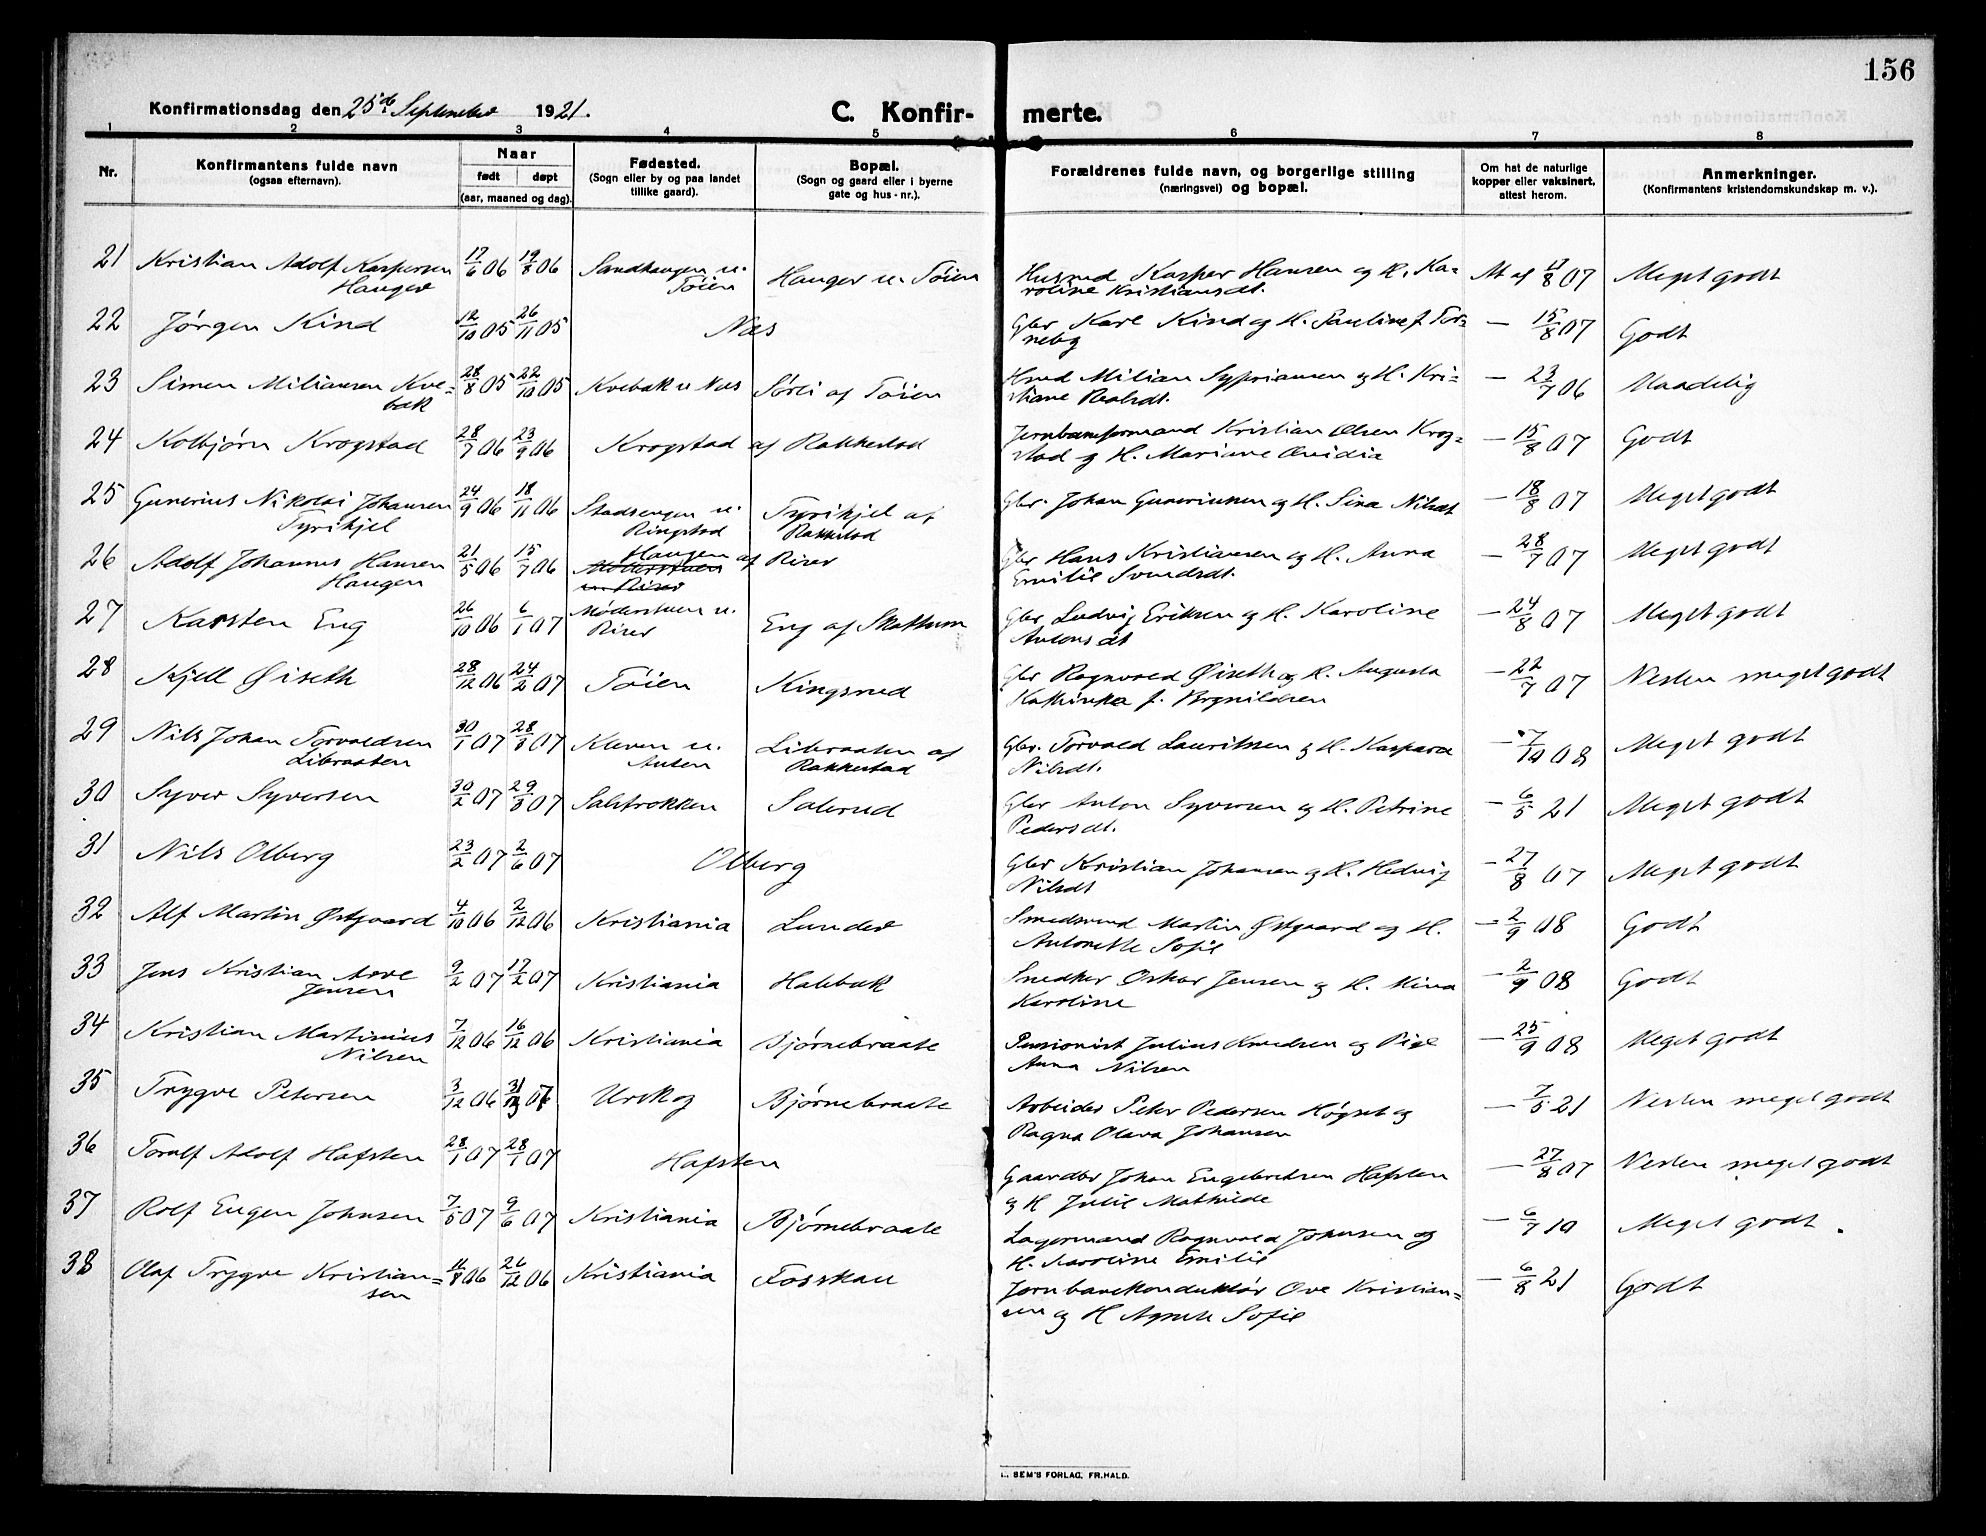 156
Konfirmationsdag den 25de September 1921.
C. Konfir- merte.
1 2 3 4 5 6 7 8
Nr.
Konfirmantens fulde navn
(ogsaa efternavn).
Naar
født døpt
(aar, maaned og dag).
Fødested.
(Sogn eller by og paa landet
tillike gaard).
Bopæl.
(Sogn og gaard eller i byerne
gate og hus-nr.).
Forældrenes fulde navn, og borgerlige stilling
(næringsvei) og bopæl.
Om hat de naturlige
kopper eller vaksinert,
attest herom.
Anmerkninger.
(Konfirmantens kristendomskundskap m. v.).
21 Kristian Adolf Kaspersen 17/6 06 19/8 06 Sandhaugen u. Hauger u. Töien Husmd Kasper Hansen og H. Ka- At af 17/8 07 Meget godt
Hauger Töien roline Kristiansdt.
22 Jørgen Kind 12/10 05 26/11 05 Næs Gbr Karl Kind og H. Pauline f. Tor- — 15/8 07 Godt
neby
23 Simen Miliansen Kve- 28/8 05 22/10 05 Kvebak u Næs Sørli af Töien Hmd Milian Sypriansen og H. Kri- — 23/7 06 Maadelig
bak stiane
24 Kolbjørn Krogstad 28/7 06 23/9 06 Krogstad af Rakkestad Jernbaneformand Kristian Olsen Krog- — 15/8 07 Godt
stad og H. Mariane Ovidia
25 Gunerius Nikolai Johansen 24/9 06 18/11 06 Stadsengen u. Tyrihjel af Gbr. Johan Guneriussen og H. Sina Nilsdt — 18/8 07 Meget godt
Tyrihjel Ringstad Rakkestad
26 Adolf Johannes Hansen 21/5 06 15/7 06 Haugen af Rirer Gbr Hans Kristiansen og H. Anna — 28/7 07 Meget godt
Haugen u Rirer Emilie Svendsdt.
27 Karsten Eng 26/10 06 6/1 07 Møderstuen u. Eng af Skattum Gbr Ludvig Eriksen og H. Karoline — 24/8 07 Meget godt
Rirer Antonsdt
28 Kjell Øiseth 28/12 06 24/2 07 Töien Kingsrud Gbr Ragnvald Øiseth og H. Augusta — 22/7 07 Nesten meget godt
Kathinka f. Brynildsen
29 Nils Johan Torvaldsen 30/1 07 28/3 07 Kleven u. Libraaten af Gbr. Torvald Lauritsen og H. Kaspara — 7/10 08 Meget godt
Libraaten Rakkestad Nilsdt.
30 Syver Syversen 30/2 07 29/3 07 Solerud Gbr Anton Syversen og H. Petrine — 6/5 21 Meget godt
Pedersdt.
31 Nils Olberg 23/2 07 2/6 07 Olberg Gbr Kristian Johansen og H. Hedvig — 27/8 07 Meget godt
Nilsdt
32 Alf Martin Østgaard 4/10 06 2/12 06 Kristiania Lunder Smedsvend Martin Østgaard og H. — 2/9 08 Godt
Antonette Sofie
33 Jens Kristian Aave 9/2 07 17/2 07 Kristiania Halebak Snedker Oskar Jensen og H. Mina — 2/9 08 Godt
Jensen Karoline
34 Kristian Martinius 7/12 06 16/12 06 Kristiania Bjørnebraate Pensionist Julius Knudsen og Pige — 25/9 08 Meget godt
Nilsen Anna Nilsen
35 Trygve Petersen 3/12 06 31/3 07 Urskog Bjørnebraate Arbeider Peter Pedersen Høgset og — 7/5 21 Nesten meget godt
Ragna Olava Johansen
36 Toralf Adolf Hafsten 28/1 07 28/1 07 Hafsten Gaardbr Johan Engebretsen Hafsten — 27/8 07 Nesten meget godt
og H Julie Mathilde
37 Rolf Eugen Johnsen 7/5 07 9/6 07 Kristiania Bjørnebraate Lagermand Ragnvald Johnsen og — 6/7 10 Meget godt.
H. Karoline Emilie
38 Olaf Trygve Kristian- 11/8 06 26/12 06 Kristiania Fosskau Jernbanekonduktør Ove Kristian- — 6/8 21 Godt
sen sen og H Agnete Sofie
SEM'S FORLAG, FR.HALD.